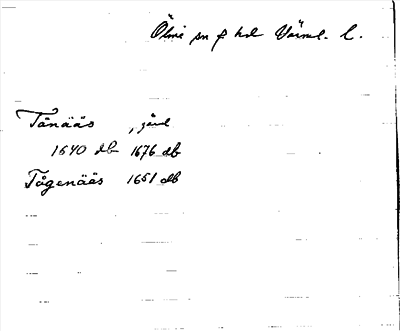 Ölme sn o hd Värml. l.
Tånääs, gård
1640 db 1676 db
Tågenääs 1651 db